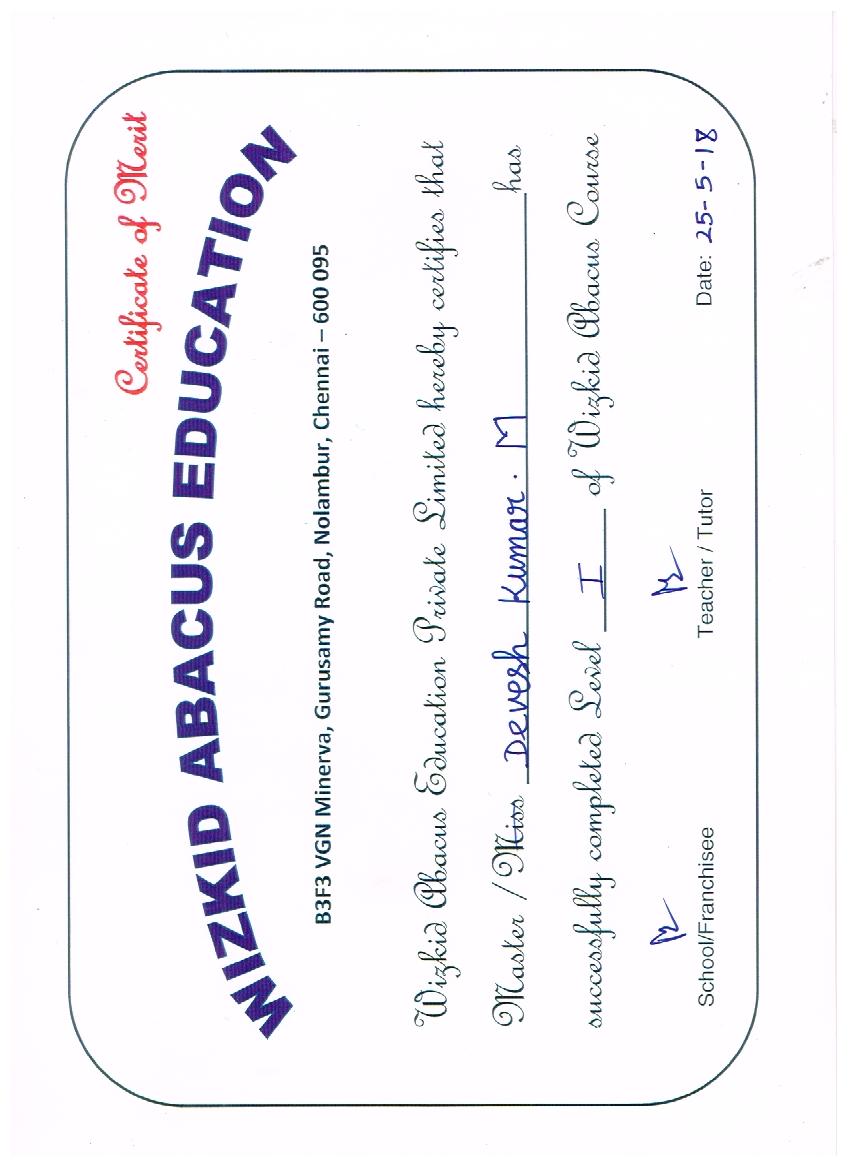 Certificate of Merit
WIZKID ABACUS EDUCATION
B3F3 VGN Minerva, Gurusamy Road, Nolambur, Chennai – 600 095
Wizkid Abacus Education Private Limited hereby certifies that
Master / Miss Devesh Kumar. M has
successfully completed Level I of Wizkid Abacus Course
School/Franchisee Teacher / Tutor Date: 25-5-18